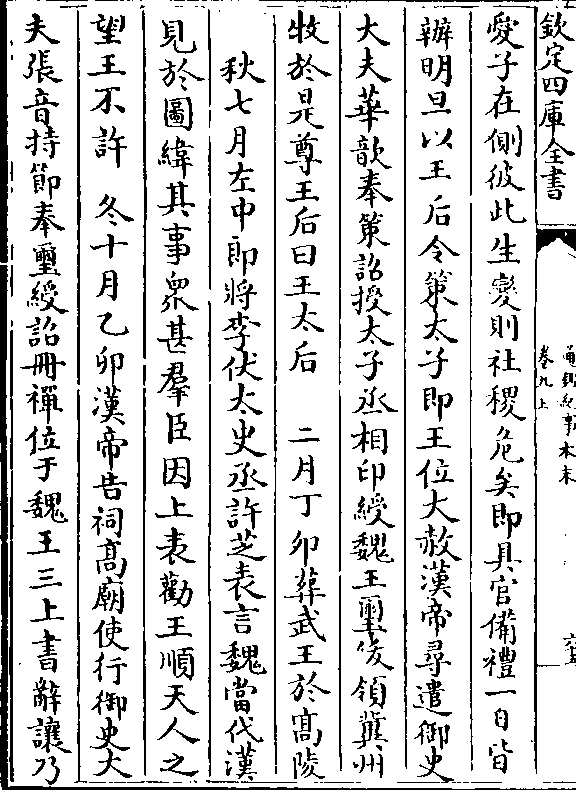 欽定四庫全書
通鑑紀事本末
卷九上
愛子在側彼此生變則社稷危矣即具官備禮一日皆
辦明旦以王后令策太子即王位大赦漢帝尋遣御史
大夫華歆奉策詔授太子丞相印綬魏王璽綬領冀州
牧於是尊王后曰王太后　二月丁卯葬武王於髙陵
秋七月左中郎將李伏太史丞許芝表言魏當代漢
見於圖緯其事衆甚羣臣因上表勸王順天人之
望王不許　冬十月乙卯漢帝告祠髙廟使行御史大
夫張音持節奉璽綬詔冊禪位于魏王三上書辭讓乃